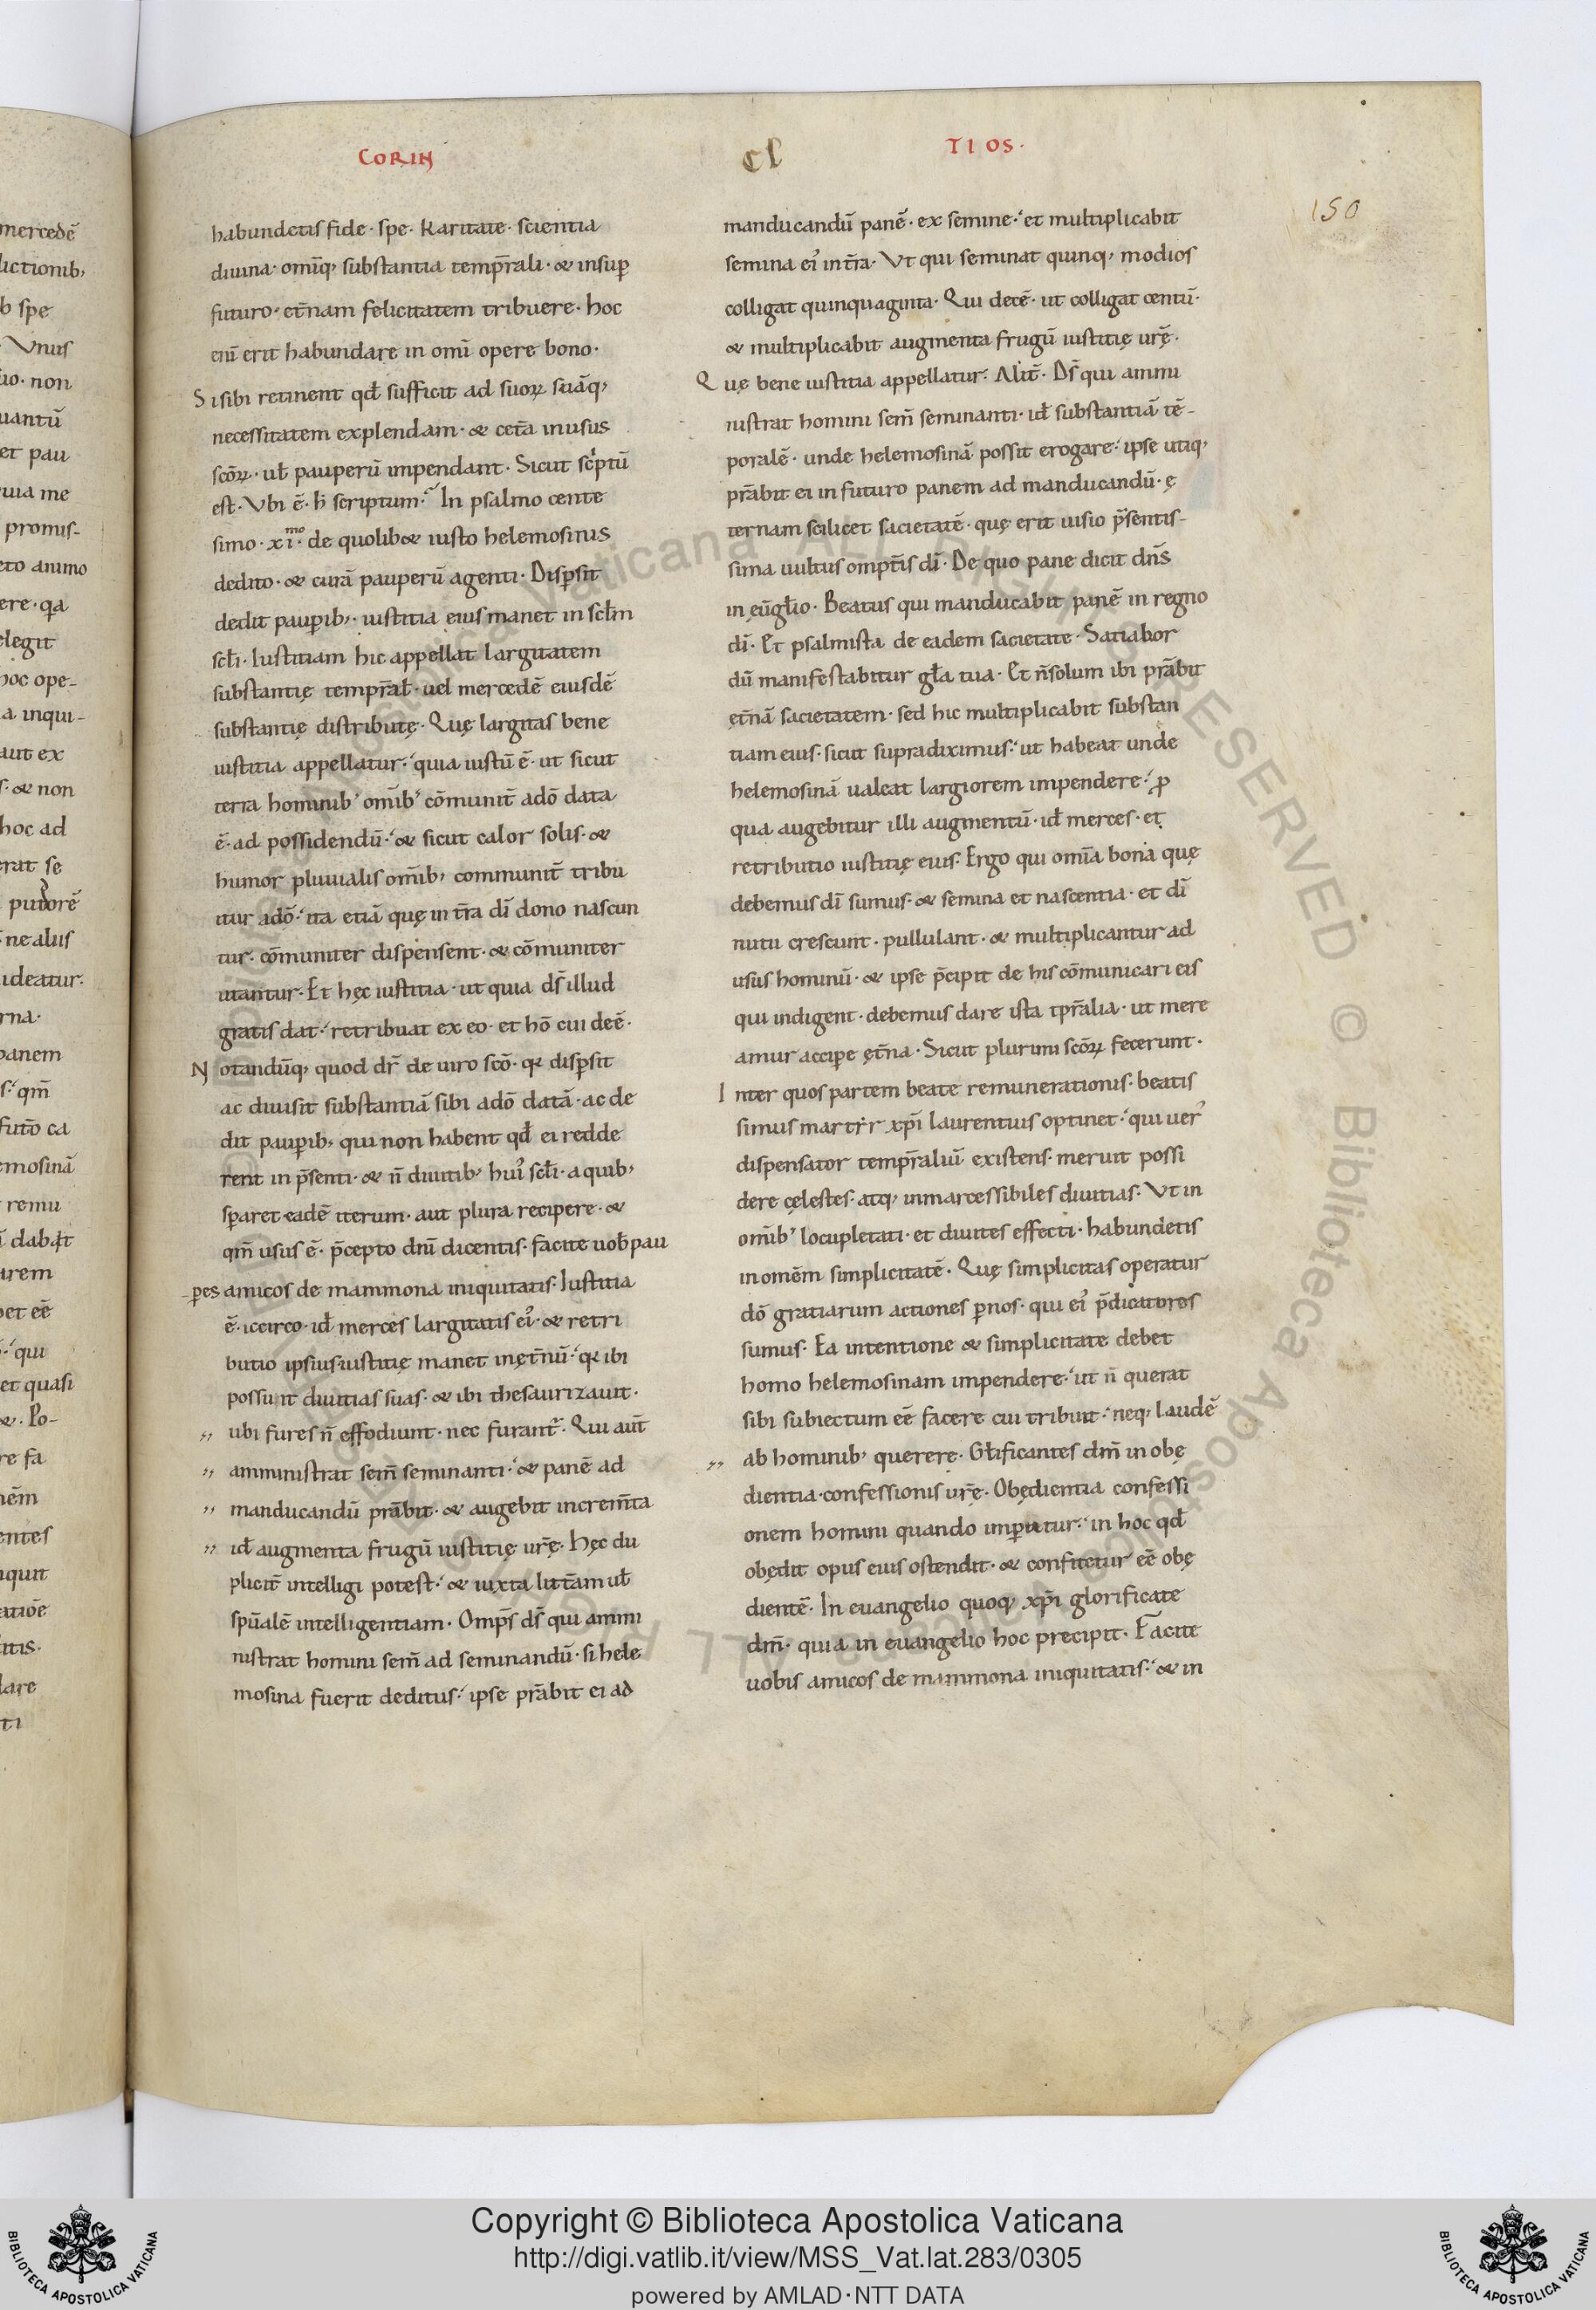 CORIN
CL
TIOS·
150
habundetis fide· spe· Karitate· scientia
diuina· omĩq; substantia temp̃rali· & insuꝑ
futuro· et̃nam felicitatem tribuere· hoc
enĩ erit habundare in omĩ opere bono·
Si sibi retinent qđ sufficit ad suoꝝ suãq;
necessitatem explendam· & cet̃a in usus
scõꝝ· uł pauperũ impendant· Sicut scͥptũ
est· Vbi ẽ· h̃ scriptum? In psalmo cente
simo· xi·ᵐᵒ de quolib& iusto helemosinis
dedito· & curã pauperũ agenti· Disꝑsit
dedit pauꝑib;· iustitia eius manet in scłm
scłi· Iustitiam hic appellat largitatem
substantię temp̃rał· uel mercedẽ eiusdẽ
substantię distributę· Quę largitas bene
iustitia appellatur· quia iustũ ẽ· ut sicut
terra hominib; om̃ib; cõmunit̃ adõ data
ẽ· ad possidendũ· & sicut calor solis· &
humor pluuialis om̃ib; communit̃ tribu
itur adõ· ita etiã quę in t̃ra dĩ dono nascun
tur· cõmuniter dispensent· & cõmuniter
utantur· Et hęc iustitia· ut quia ds̃ illud
gratis dat· retribuat ex eo· et hõ cui deẽ·
Notandũq; quod dr̃ de uiro scõ· qꝛ disꝑsit
ac diuisit substantiã sibi adõ datã· ac de
dit pauꝑib; qui non habent qđ ei redde
rent in p̃senti· & ñ diuitib; huiꝰ scłi· a quib;
sꝑaret eadẽ iterum· aut plura recipere· &
qm̃ usus ẽ· p̃cepto dnĩ dicentis· facite uob̃ pau
ꝑes amicos de mammona iniquitatis· Iustitia
ẽ· iccirco· iđ merces largitatis eiꝰ· & retri
butio ipsius iustitię manet in ęt̃nũ· qꝛ ibi
possunt diuitias suas· & ibi thesaurizauit·
ubi fures ñ effodiunt· nec furant̃· Qui aut̃
amministrat sem̃ seminanti· & panẽ ad
manducandũ pr̃abit· & augebit increm̃ta
iđ augmenta frugũ iustitię ur̃ę· Hęc du
plicit̃ intelligi potest· & iuxta litt̃am uł
spũalẽ intelligentiam· Omp̃s ds̃ qui ammi
nistrat homini sem̃ ad seminandũ· si hele
mosina fuerit deditus· ipse pr̃abit ei ad
manducandũ panẽ· ex semine· et multiplicabit
semina eiꝰ in t̃ra· Vt qui seminat quinq; modios
colligat quinquaginta· Qui decẽ· ut colligat centũ·
& multiplicabit augmenta frugũ iustitię ur̃ę·
Quę bene iustitia appellatur· Alit̃· Ds̃ qui ammi
nistrat homini sem̃ seminanti· iđ substantiã tẽ-
poralẽ· unde helemosinã possit erogare· ipse utiq;
pr̃abit ei in futuro panem ad manducandũ· ę
ternam scilicet sacietatẽ· quę erit uisio p̃sentis-
sima uultus ompt̃is dĩ· De quo pane dicit dñs
in eũgłio· Beatus qui manducabit panẽ in regno
dĩ· Et psalmista de eadem sacietate· Satiabor
dũ manifestabitur gła tua· Et ñ solum ibi pr̃abit
ęt̃nã sacietatem· sed hic multiplicabit substan
tiam eius· sicut supradiximus· ut habeat unde
helemosinã ualeat largiorem impendere· ꝓ
qua augebitur illi augmentũ· iđ merces· et
retributio iustitię eius· Ergo qui omĩa bona quę
debemus dĩ sumus· & semina et nascentia· et dĩ
nutu crescunt· pullulant· & multiplicantur ad
usus hominũ· & ipse p̃cipit de his cõmunicari eis
qui indigent· debemus dare ista tpr̃alia· ut mere
amur acciꝑe ęt̃na· Sicut plurimi scõꝝ fecerunt·
Inter quos partem beate remunerationis· beatis
simus martir xpĩ laurentius optinet· qui uerꝰ
dispensator temp̃raliũ existens· meruit possi
dere cęlestes· atq; inmarcessibiles diuitias· Vt in
om̃ib; locupletati· et diuites effecti· habundetis
in omẽm simplicitatẽ· Quę simplicitas operatur
dõ gratiarum actiones ꝑ nos· qui eiꝰ p̃dicatores
sumus· Ea intentione & simplicitate debet
homo helemosinam impendere· ut ñ querat
sibi subiectum eẽ facere cui tribuit· neq; laudẽ
ab hominib; querere· Głificantes dm̃ in obę
dientia confessionis ur̃ę· Obędientia confessi
onem homini quando imꝑatur· in hoc qđ
obędit opus eius ostendit· & confitetur eẽ obę
dientẽ· In euangelio quoq; xpĩ glorificate
dm̃· quia in euangelio hoc precipit· Facite
uobis amicos de mammona iniquitatis· & in
Copyright © Biblioteca Apostolica Vaticana
http://digi.vatlib.it/view/MSS_Vat.lat.283/0305
powered by AMLAD·NTT DATA